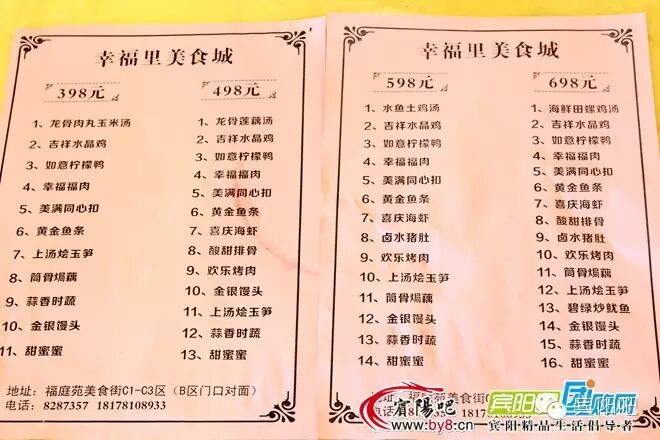 幸福里美食城
398元
1、龙骨肉丸玉米汤
2、吉祥水晶鸡
3、如意柠檬鸭
4、幸福福肉
5、美满同心扣
6、黄金鱼条
7、上汤烩玉笋
8、筒骨焗藕
9、蒜香时蔬
10、金银馒头
11、甜蜜蜜
498元
1、龙骨莲藕汤
2、吉祥水晶鸡
3、如意柠檬鸭
4、幸福福肉
5、美满同心扣
6、黄金鱼条
7、喜庆海虾
8、酸甜排骨
9、欢乐烤肉
10、金银馒头
11、上汤烩玉笋
12、蒜香时蔬
13、甜蜜蜜
地址：福庭苑美食街C1-C3区（B区门口对面）
电话：8287357 18178108933
幸福里美食城
598元
1、水鱼土鸡汤
2、吉祥水晶鸡
3、如意柠檬鸭
4、幸福福肉
5、美满同心扣
6、黄金鱼条
7、喜庆海虾
8、卤水猪肚
9、欢乐烤肉
10、上汤烩玉笋
11、筒骨焗藕
12、金银馒头
13、蒜香时蔬
14、甜蜜蜜
698元
1、海鲜田螺鸡汤
2、吉祥水晶鸡
3、如意柠檬鸭
4、幸福福肉
5、美满同心扣
6、黄金鱼条
7、喜庆海虾
8、酸甜排骨
9、卤水猪肚
10、欢乐烤肉
11、金银馒头
12、上汤烩玉笋
13、碧绿炒鱿鱼
14、筒骨焗藕
15、蒜香时蔬
16、甜蜜蜜
地址：福庭苑美食街C
电话：8287357 18178108933
賓陽吧
www.by8.cn
宾阳
宾阳网
宾阳精品生活倡导者